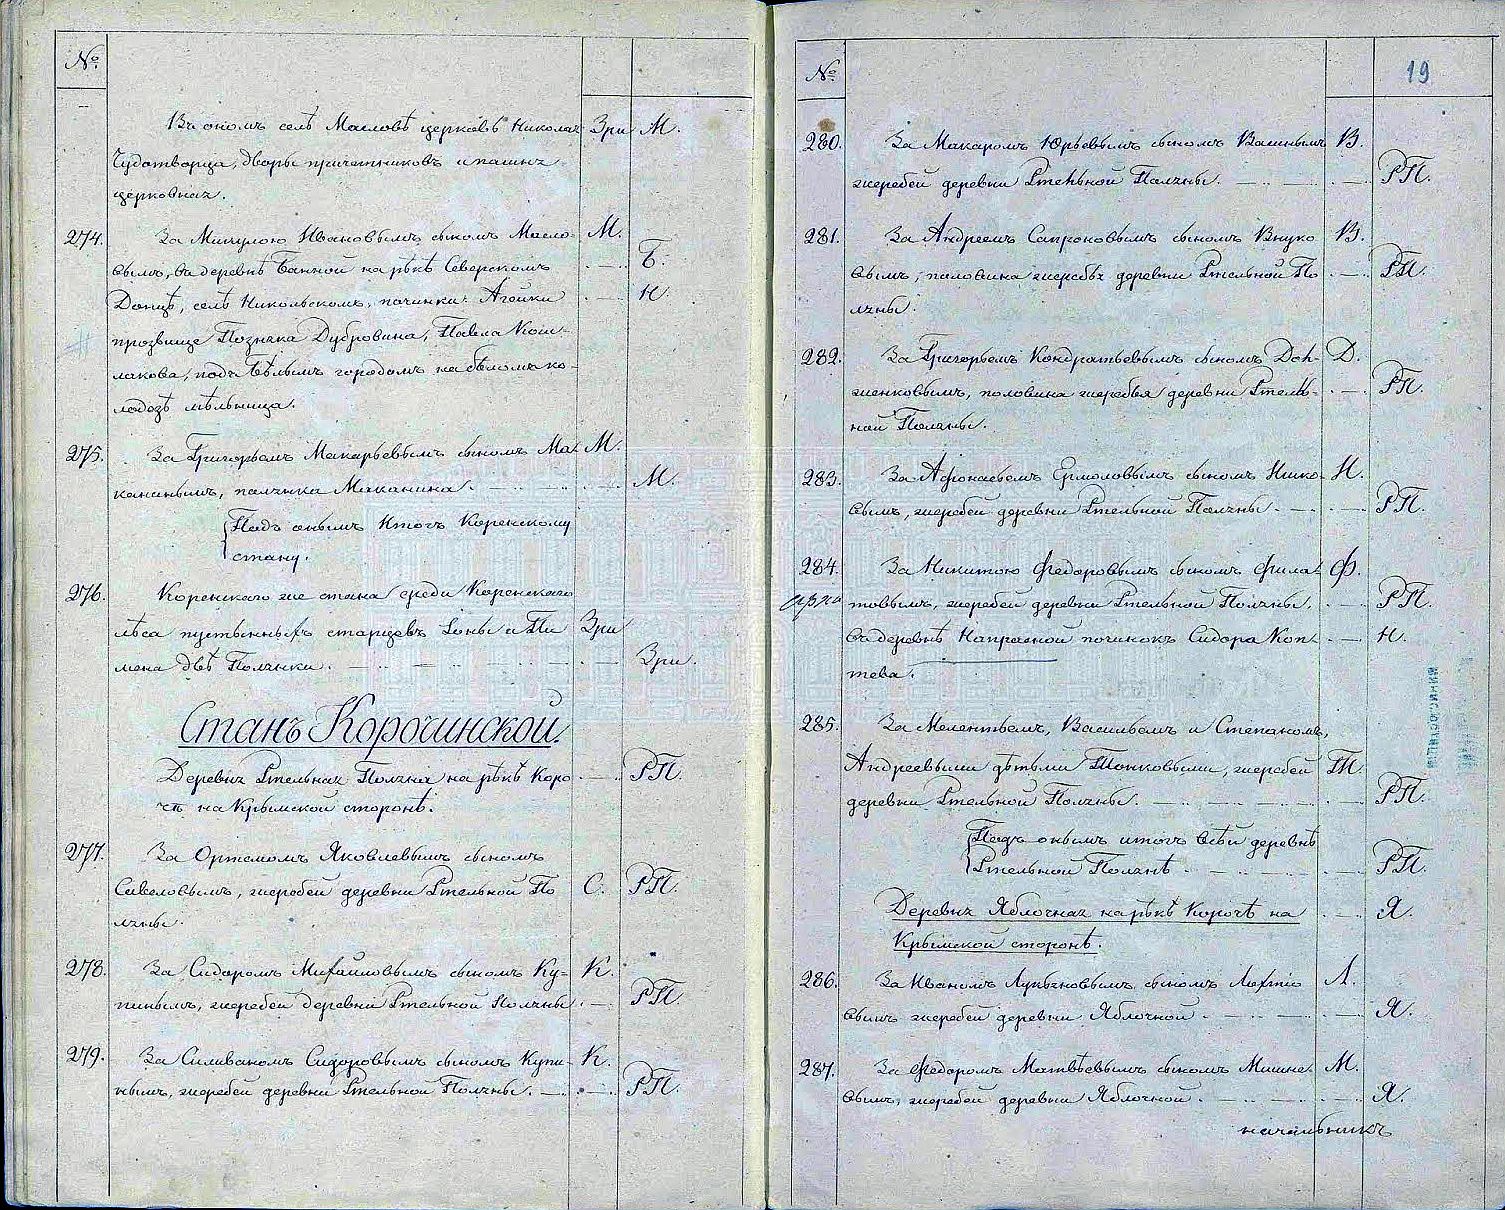 №
Въ ономъ селѣ Масловѣ церковь Николая Зри М.
Чудотворца, дворы причетниковъ и пашня
церковная.
274. За Микулою Ивановымъ сыномъ Масло- М.
вымъ, въ деревнѣ Банной на рѣкѣ Северскомъ Б.
Донцѣ, селѣ Никольскомъ, починки Агѣйки Н
прозвище Позняка Дубровина, Павла Кош-
лакова, подъ Бѣлымъ городомъ на бѣломъ ко-
лодозѣ мѣльница.
275. За Григорьемъ Макарьевымъ сыномъ Ма- М.
канинымъ, полянка Маканина. М.
Подъ онымъ Итогъ Коренскому
стану.
276. Коренскаго же стана среди Коренскаго
лѣса пустынныхъ старцевъ Іоны и Пи Зри
мена двѣ Полянки. Зри.
Станъ Корочинской
Деревня Ртельная Поляна на рѣкѣ Коро РП.
чѣ на Крымской сторонѣ.
277. За Ортемомъ Яковлевымъ сыномъ
Савеловымъ, жеребей деревни Ртельной По С. РП.
ляны.
278. За Сидаромъ Михайловымъ сыномъ Ку- К.
пинымъ, жеребей деревни Ртельной Поляны РП.
279. За Силиваномъ Сидоровымъ сыномъ Купи- К.
нымъ, жеребей деревни Ртельной Поляны. РП.
№ 19
280. За Макаромъ Юрьевымъ сыномъ Вашнымъ В.
жеребей деревни Ртельной Поляны. РП.
281. За Андреемъ Сапроновымъ сыномъ Внуко В.
вымъ, половина жеребья деревни Ртельной По РП.
ляны.
282. За Григорьемъ Кондратьевымъ сыномъ Дол- Д.
женковымъ, половина жеребья деревни Ртель- РП.
ной Поляны.
283. За Афонасьемъ Ермоловымъ сыномъ Нико- Н.
вымъ, жеребей деревни Ртельной Поляны РП.
284. За Никитою Федоровымъ сыномъ Фила- Ф.
товымъ, жеребей деревни Ртельной Поляны. РП.
въ деревнѣ Напрасной починокъ Сидора Коп- Н.
тева.
285. За Мелентьемъ, Васильемъ и Степаномъ,
Андреевыми дѣтьми Топковыми, жеребей Т.
деревни Ртельной Поляны. РП.
Подъ онымъ итогъ всѣй деревнѣ
Ртельной Полянѣ РП.
Деревня Яблочная на рѣкѣ Корочѣ на Я.
Крымской сторонѣ.
286. За Иваномъ Лукьяновымъ, сыномъ Лахтіо Л.
вымъ жеребей деревни Яблочной Я.
287. За Федоромъ Матвѣевымъ сыномъ Мишне- М.
вымъ, жеребей деревни Яблочной Я.
начальникъ